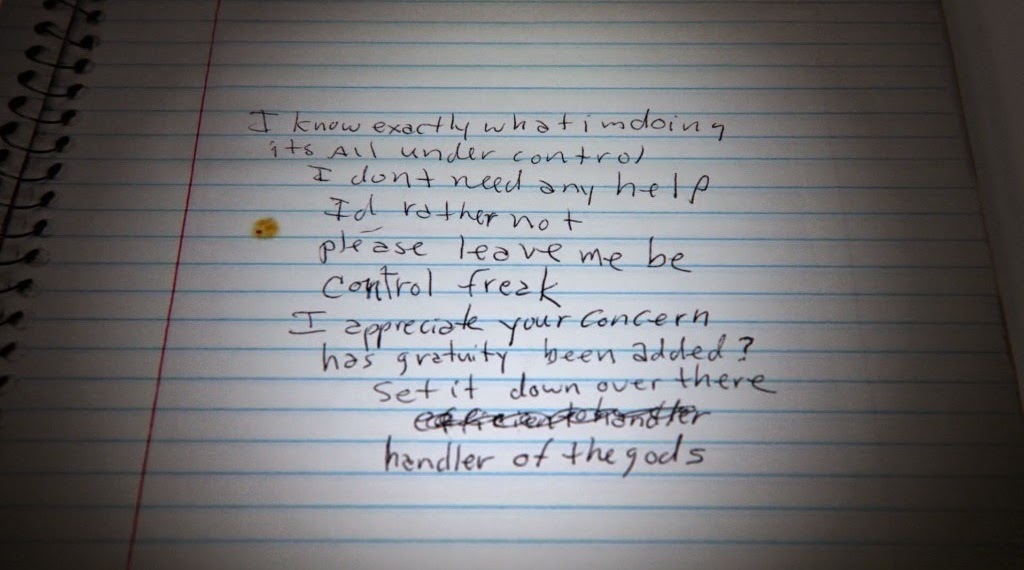 I know exactly what im doing
its All under control
I dont need any help
Id rather not
please leave me be
Control freak
I appreciate your Concern
has gratuity been added?
Set it down over there
handler of the gods